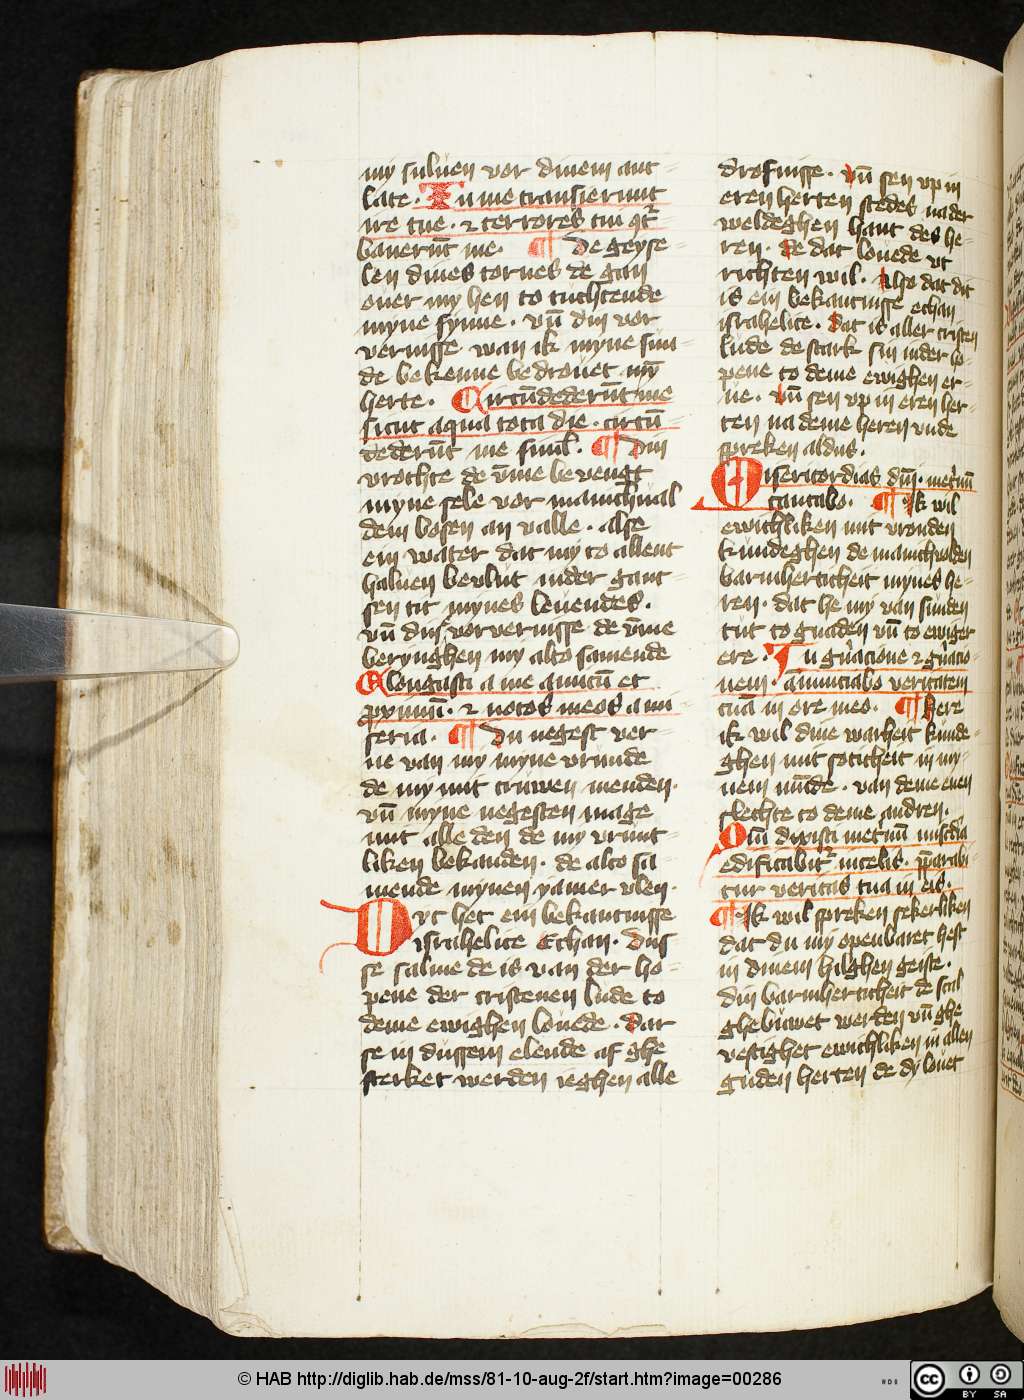 my suluen vor dinem ant-
late. In me transierunt
ire tue. ⁊ terrores tui ɔt̄
bauerūt me. ¶ De geyse-
len dines tornes de gan
ouer my hen to tuchtende
myne synne. vn̄ din vor
vernisse wan ik myne sun-
de bekenne bedrouet my
herte. Circūdederūt me
sicut aqua tota die. circū-
dederūt me simul. ¶ Din
vrochte de v̄me beuengt
myne sele vor manichual
dem bosen an valle. alse
ein water dat my to allent
haluen bevlut in der gant-
sen tit mynes leuendes.
vn̄ din vorvernisse de v̄me
berynghen my alto samende
Elongasti a me amicū et
proximū. ⁊ notos meos a mi-
seria. ¶ Du negest ver-
ne van my myne vrunde
de my mit truwen menden.
vn̄ myne negesten mage
mit alle den de my vrunt-
liken bekanden. de alto sa
mende mynen yamer vlen.
Dyt het ein bekantnisse
israhelite Echan. Dus
se salme de is van der ho-
pene der cristenen lude to
deme ewighen louede. Dar
se in dussem elende af ghe
sterket werden ieghen alle
drofnisse. vn̄ sen vp in
eren herten stedes na der
weldeghen hant des he-
ren. de dat louede vt
richten wil. Also dat dit
is ein bekantnisse echan
israhelite. Dat is aller cristen
lude de stark sin in der ho-
pene to deme ewighen er-
ue. vn̄ sen vp in eren her-
ten na deme heren vnde
spreken aldus.
Misericordias dn̄i. in et̄nū
cantabo. ¶ Ik wil
ewichliken mit vronden
kundeghen de manichvolden
barmherticheit mynes he-
ren. dat he my van sunden
tut to gnaden vn̄ to ewiger
ere. In gn̄acione ⁊ gn̄acio-
nem. annuntiabo veritatem
tuā in ore meo. ¶ Here
ik wil dine warheit kunde-
ghen mit soticheit in my-
nem mūde. van deme enen
slechte to deme andren.
Qm̄ dixisti in et̄nū mis̄dia
edificabit̄ in celis. p̄parabi
tur veritas tua in eis.
¶ Ik wil spreken sekerliken
dat du my openbaret hest
in dinem hilghen geiste.
din barmherticheit de scal
ghebuwet werden vn̄ ghe
vestighet ewichliken in allen
guden herten de dy louet
© HAB http://diglib.hab.de/mss/81-10-aug-2f/start.htm?image=00286
HAB
cc BY SA